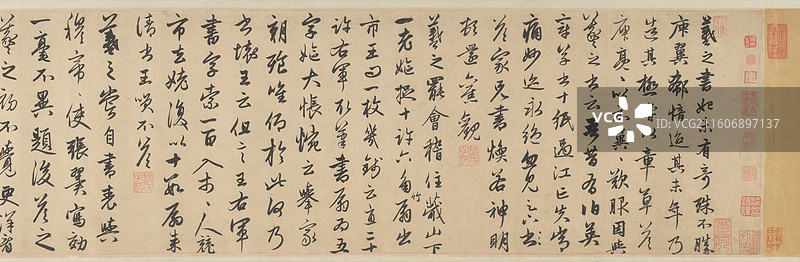 羲之書如未有奇殊不勝
庾翼郗愔迨其末年乃
造其極嘗以章草答
庾亮〻以示翼〻歎服因與
羲之書云吾昔有伯英
章草書十紙過江亡失常
痛妙迹永絕忽見足下書
答家兄書煥若神明
頓還舊觀
羲之罷會稽住蕺山下
一老嫗捉十許六角竹扇出
市王問一枚幾錢云直二十
許右軍取筆書扇扇為五
字嫗大悵惋云舉家
朝飧唯仰於此何乃
書壞王云但言王右軍
書字索一百入市〻人競
市去姥復以十數扇來
請書王笑不答
羲之嘗自書表與
穆帝〻使張翼寫効
一毫不異題後答之
羲之初不覺更詳看
VCG
视觉中国
VCG211606897137